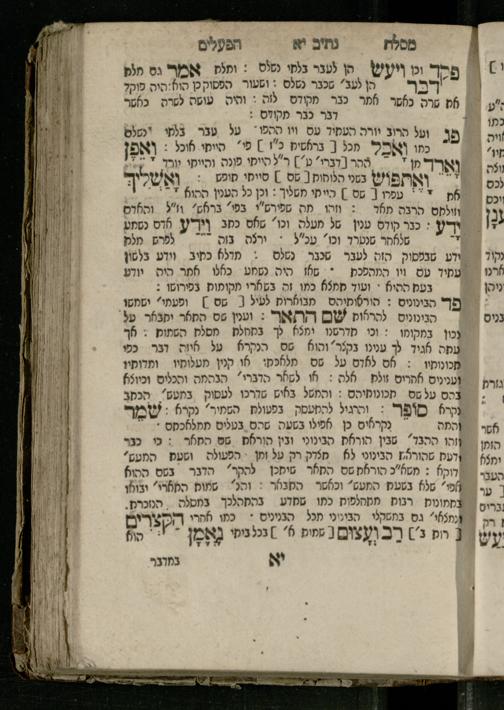 מסלת נתיב יא הפעלים
פקד וכו ויעש הן לעבר בלתי נשלם : ומלת אמר גם מלת
דבר הן לעב׳ שכבר נשלם : ושעור הפסוק כן הוא : היה פוקד
את שרה כאשר אמר כבר מקודם לזה : והיה עושה לשרה כאשר
דבר כבר מקודם :
פג ועל הרוב יורה העתיד עם ויו ההפו׳ על עבר בלתי נשלם
כמו וָאֹכַל מכל [ בראשית כ״ז ] פי׳ הייתי אוכל : וָאֵפֶן
וָאֵרֵד מן ההר [ דברי׳ ט׳ ] ר״ל הייתי פונה והייתי יורד
וָאֶתְפּוֹשׂ בשני הלוחות [ שם ] הייתי תופש : וָאַשְׁלִיךְ
את עפרו [ שם ] הייתי משליך : וכן כל הענין ההוא
וזולתם הרבה מאד : וזהו מה שפירש״י בפי׳ בראש׳ וז״ל והאדם
יָדַע : כבר קודם ענין של מעלה וכו׳ שאם כתב וַיֵּדַע אדם נשמע
שלאחר שנטרד וכו׳ עכ״ל ׃ ירלה בזה לפרש מלת
ידע שבפסוק הזה לעבר שכבר נשלם : מדלא כתיב וידע בלשון
עתיד עם ויו המהפכת ׃ שאז היה נשמע כאלו אמר היה יודע
בעת ההיא ׃ ועוד תמלא כמו זה בשארי מקומות בפירושו :
פד הבינונים : הוראותיהם מבוארות לעיל [ שם ] ופעמי׳ ישמשו
הבינונים להראות שֵׁם הַתּאַר : וענין שם התאר יתבאר על
נכון במקומו : וכי תדרשנו ימלא לך בתחלת מסלת השמות : אך
עתה אגיד לך ענינו בקלר׳ והוא שם הנקרא על איזה דבר כפי
תכונותיו : אם לאדם על שם מלאכתו או קנין מעלותיו ומדותיו
וענינים אחרים זולת אלה : או לשאר הדברי׳ הבהמה והכלים וכיולא
בהם על שם תכונותיהם : והמשל באיש שדרכו לעסוק במעש׳ הכתב
נקרא סוֹפֵר : והרגיל להתעסק בפעולת השמיר׳ נקרא : שֹׁמֵר
והמה נקראים כן אפילו בשעה שהם בעלים ממלאכתם ׃
וזהו ההבד׳ שבין הוראת הבינוני ובין הוראת שם התאר : כי כבר
ידעת שהוראת הבינוני לא תלדק רק על זמן הפעולה ושעת המעש׳
דוקא : משא״כ הוראת שם התאר שיתכן להקר׳ הדבר בשם ההוא
אפי׳ שלא בשעת המעש׳ וכאשר התבאר : והנ׳ שמות התארי׳ יבואו
בתמונות רבות מתחלפות כמו שתדע בהתהלכך במסלה הנזכרת.
ונמלאי׳ גם במשקלי הבינוני מכל הבנינים ׃ כמו אחרי הַקֹּצְרִים
[ רות ב׳ ] רַב וְעָצוּם [ שמות א׳ ] בכל ביתי נֶאֱמָן הוא
יא במדבר